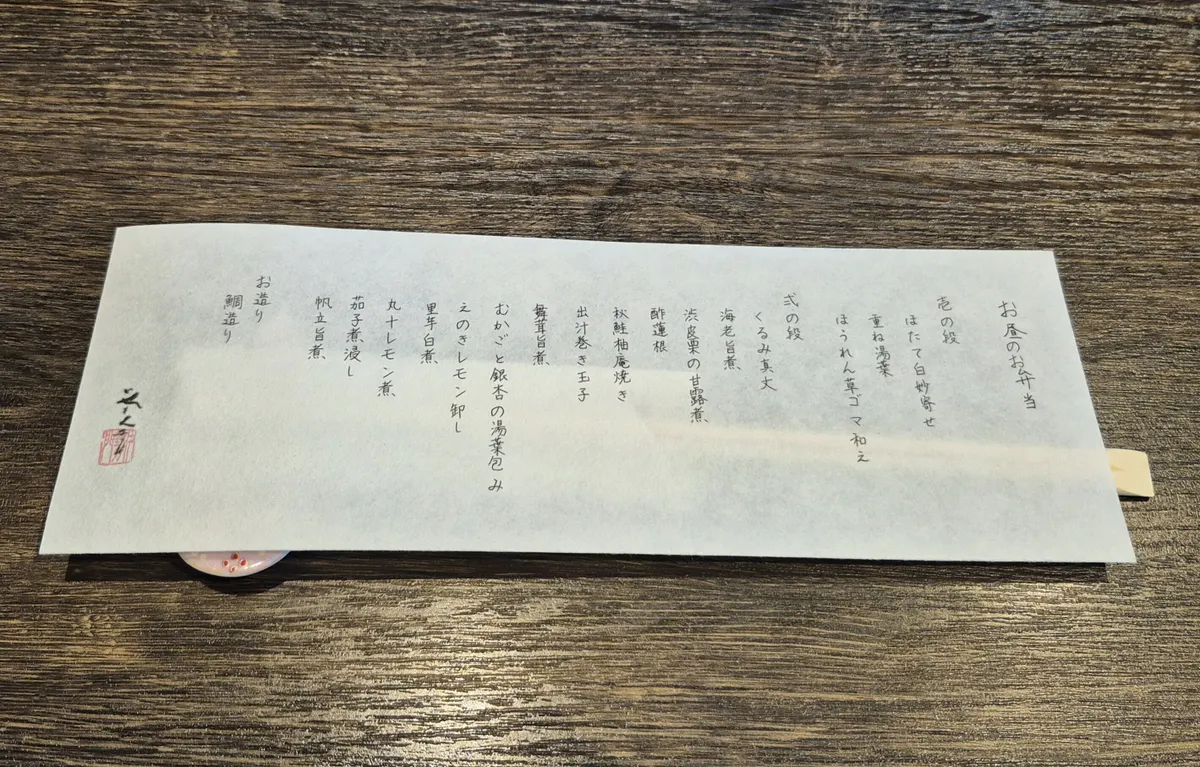 お昼のお弁当
壱の段
ほたて白妙寄せ
重ね湯葉
ほうれん草ゴマ和え
弍の段
くるみ真丈
海老旨煮
渋皮栗の甘露煮
酢蓮根
秋鮭柚庵焼き
出汁巻き玉子
舞茸旨煮
むかごと銀杏の湯葉包み
えのきレモン卸し
里芋白煮
丸十レモン煮
茄子煮浸し
帆立旨煮
お造り
鯛造り